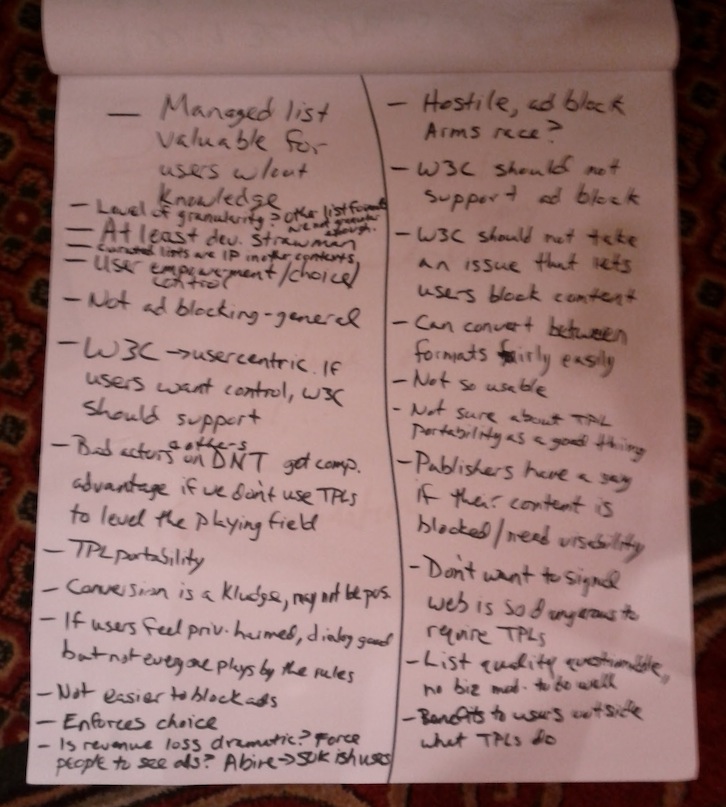 — Managed list
valuable for
users w/out
knowledge
— Level of granularity? Other list formats
are not granular
enough.
— At least dev. strawman
— Curated lists are IP in other contexts
— User empowerment/choice/
control
— Not ad blocking-general
— W3C → usercentric. If
users want control, W3C
should support
— Bad actors & others
on DNT get comp.
advantage if we don't use TPLs
to level the playing field
— TPL portability
— Conversion is a kludge, may not be pos.
— If users feel priv. harmed, dialog good
but not everyone plays by the rules
— Not easier to block ads
— Enforces choice
— Is revenue loss dramatic? Force
people to see ads? Abine →
— Hostile, ad block
Arms race?
— W3C should not
support ad block
— W3C should not take
an issue that lets
users block content
— Can convert between
formats fairly easily
— Not so usable
— Not sure about TPL
portability as a good thing
— Publishers have a say
if their content is
blocked/need visibility
— Don't want to signal
web is so dangerous to
require TPLs
— List quality questionable,
no biz mod. to be well
— Benefits to users outside
what TPLs do